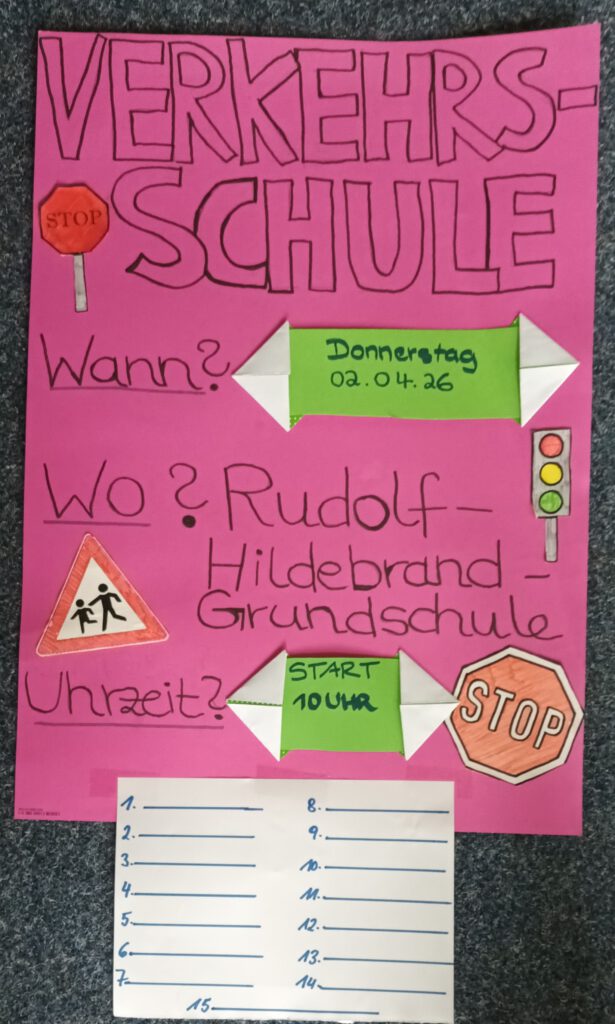 VERKEHRS-
SCHULE
STOP
Wann?
Donnerstag
02.04.26
Wo? Rudolf-
Hildebrand-
Grundschule
Uhrzeit?
START
10 UHR
STOP
1.
2.
3.
4.
5.
6.
7.
8.
9.
10.
11.
12.
13.
14.
15.